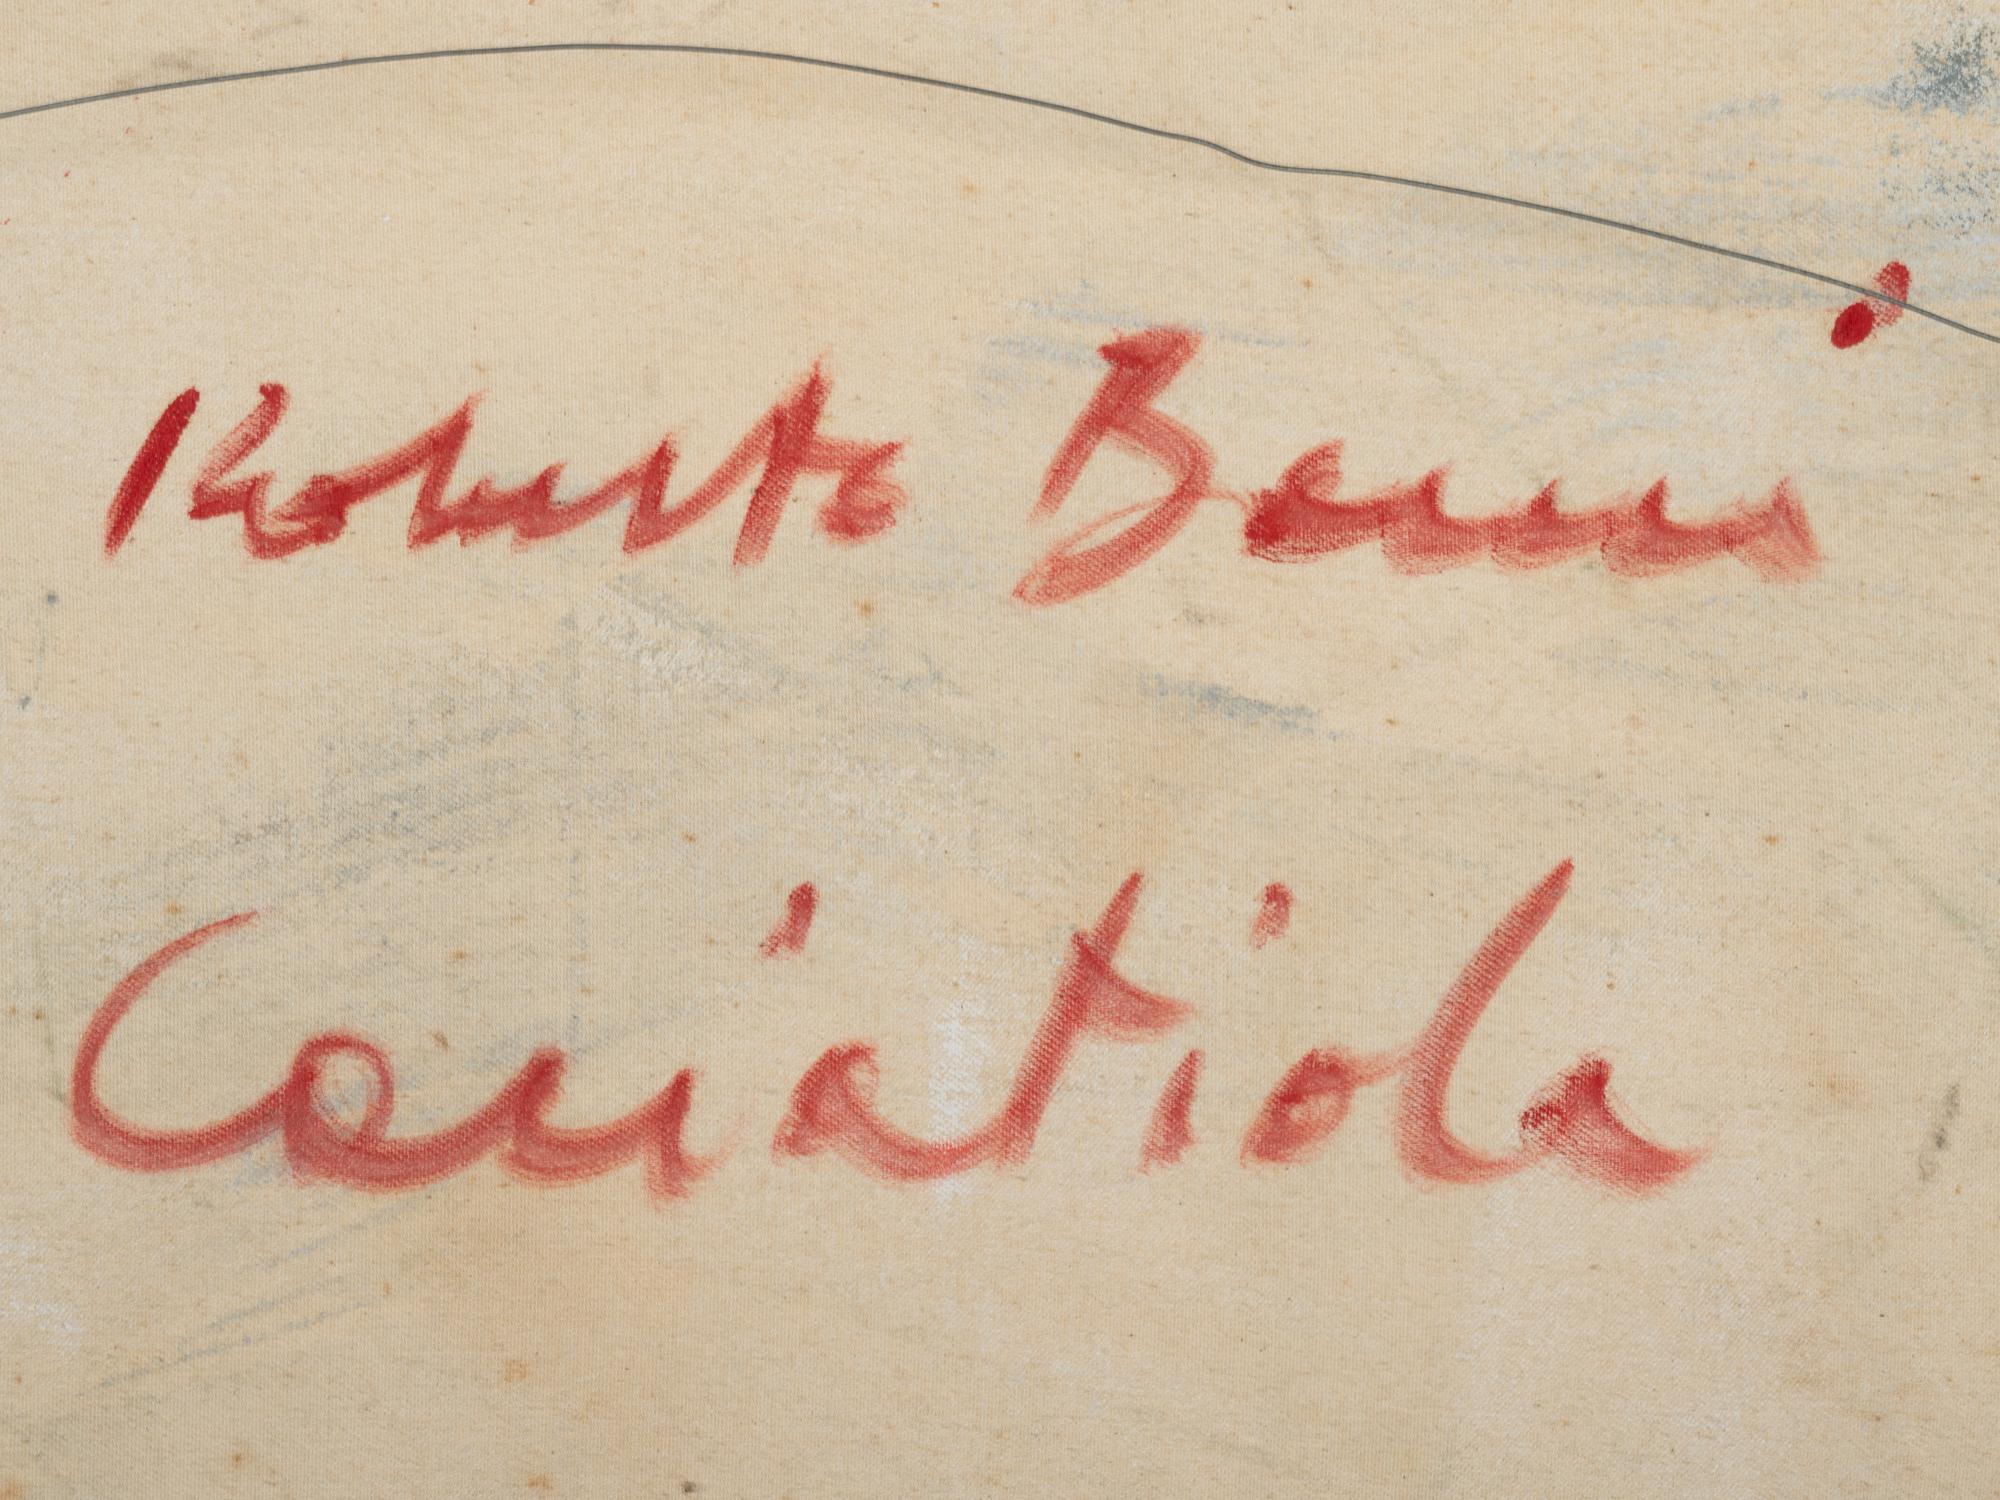 Roberto Barni
Cariatide